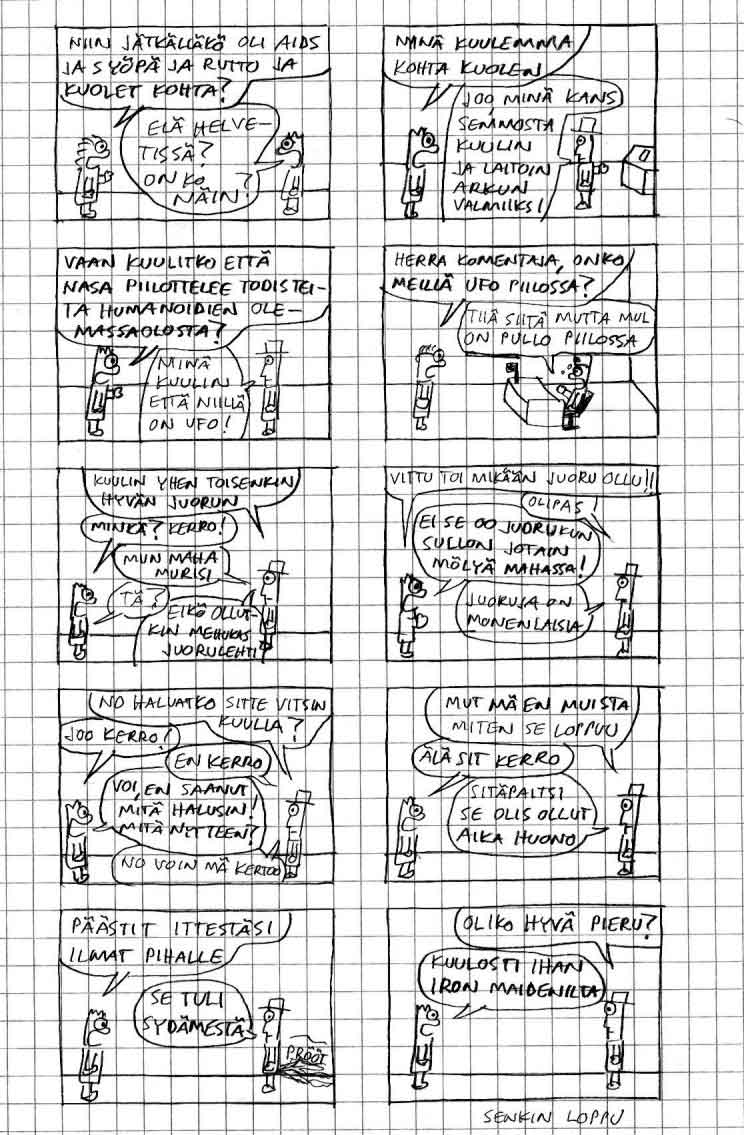 NIIN JÄTKÄLLÄKÖ OLI AIDS
JA SYÖPÄ JA RUTTO JA
KUOLET KOHTA?
ELÄ HELVE-
TISSÄ?
ONKO
NÄIN?
MINÄ KUULEMMA
KOHTA KUOLEN
JOO, MINÄ KANS
SEMMOSTA
KUULIN
JA LAITOIN
ARKUN
VALMIIKS!
VAAN KUULITKO ETTÄ
NASA PIILOTTELEE TODISTEI-
TA HUMANOIDIEN OLE-
MASSAOLOSTA?
MINÄ
KUULIN
ETTÄ NIILLÄ
ON UFO!
HERRA KOMENTAJA, ONKO
MEILLÄ UFO PIILOSSA?
TIIÄ SIITÄ MUTTA MUL
ON PULLO PIILOSSA
KUULIN YHEN TOISENKIN
HYVÄN JUORUN
MINKÄ? KERRO!
MUN MAHA
MURISI
TÄ?
EIKÖ OLLUT-
KIN MEHUKAS
JUORULEHTI
VITTU TOI MIKÄÄN JUORU OLLU!!
OLIPAS!
EI SE OO JUORU KUN
SULLON JOTAIN
MÖLYÄ MAHASSA!
JUORUJA ON
MONENLAISIA
NO HALUATKO SITTE VITSIN
KUULLA?
JOO KERRO!
EN KERRO
VOI, EN SAANUT
MITÄ HALUSIN!
MITÄ NYTTEEN?
NO VOIN MÄ KERTOO
MUT MÄ EN MUISTA
MITEN SE LOPPUU
ÄLÄ SIT KERRO
SITÄPAITSI
SE OLIS OLLUT
AIKA HUONO
PÄÄSTIT ITTESTÄSI
ILMAT PIHALLE
SE TULI
SYDÄMESTÄ
PRÖÖT
OLIKO HYVÄ PIERU?
KUULOSTI IHAN
IRON MAIDENILTA
SENKIN LOPPU